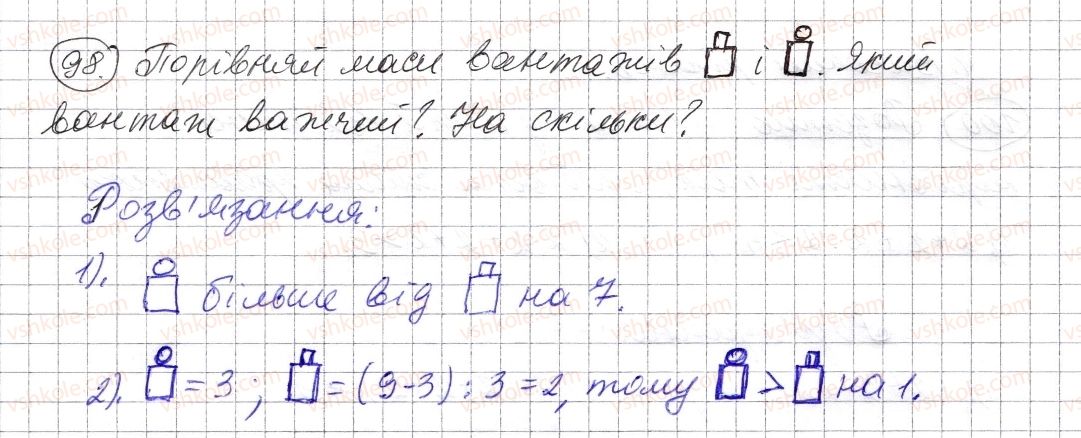 98. Порівняй маси вантажів і . Який
вантаж важчий? На скільки?
Розв'язання:
1). більше від на 7.
2). = 3; = (9-3) : 3 = 2, тому > на 1.